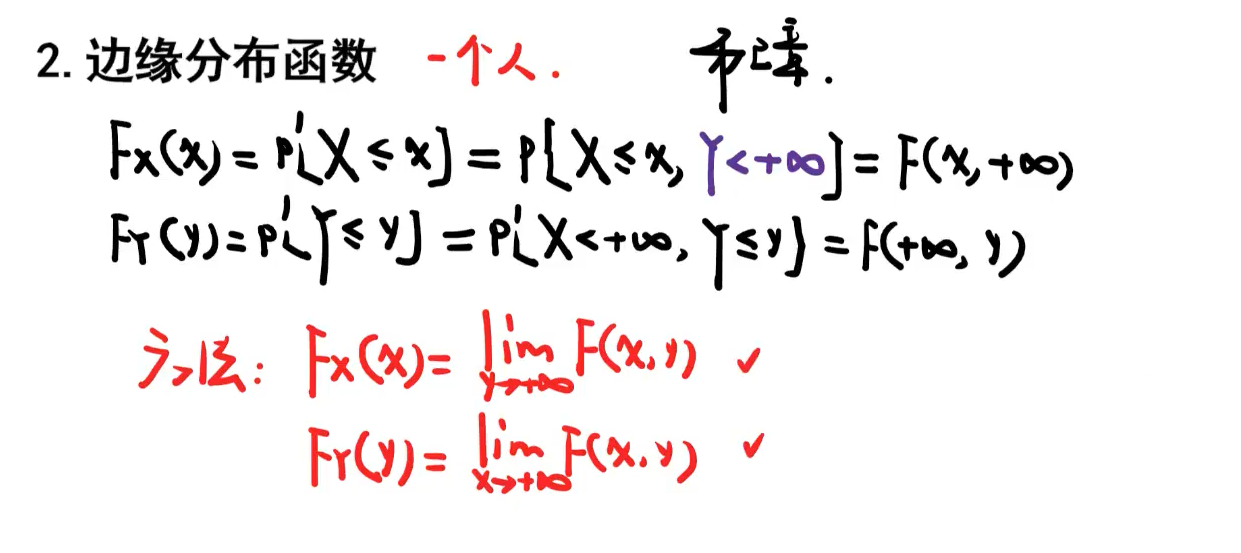 2. 边缘分布函数 一个人.
F_X(x) = P{X ≤ x} = P{X ≤ x, Y < +∞} = F(x, +∞)
F_Y(y) = P{Y ≤ y} = P{X < +∞, Y ≤ y} = F(+∞, y)
方法: F_X(x) = lim_{y→+∞} F(x, y) ✓
F_Y(y) = lim_{x→+∞} F(x, y) ✓